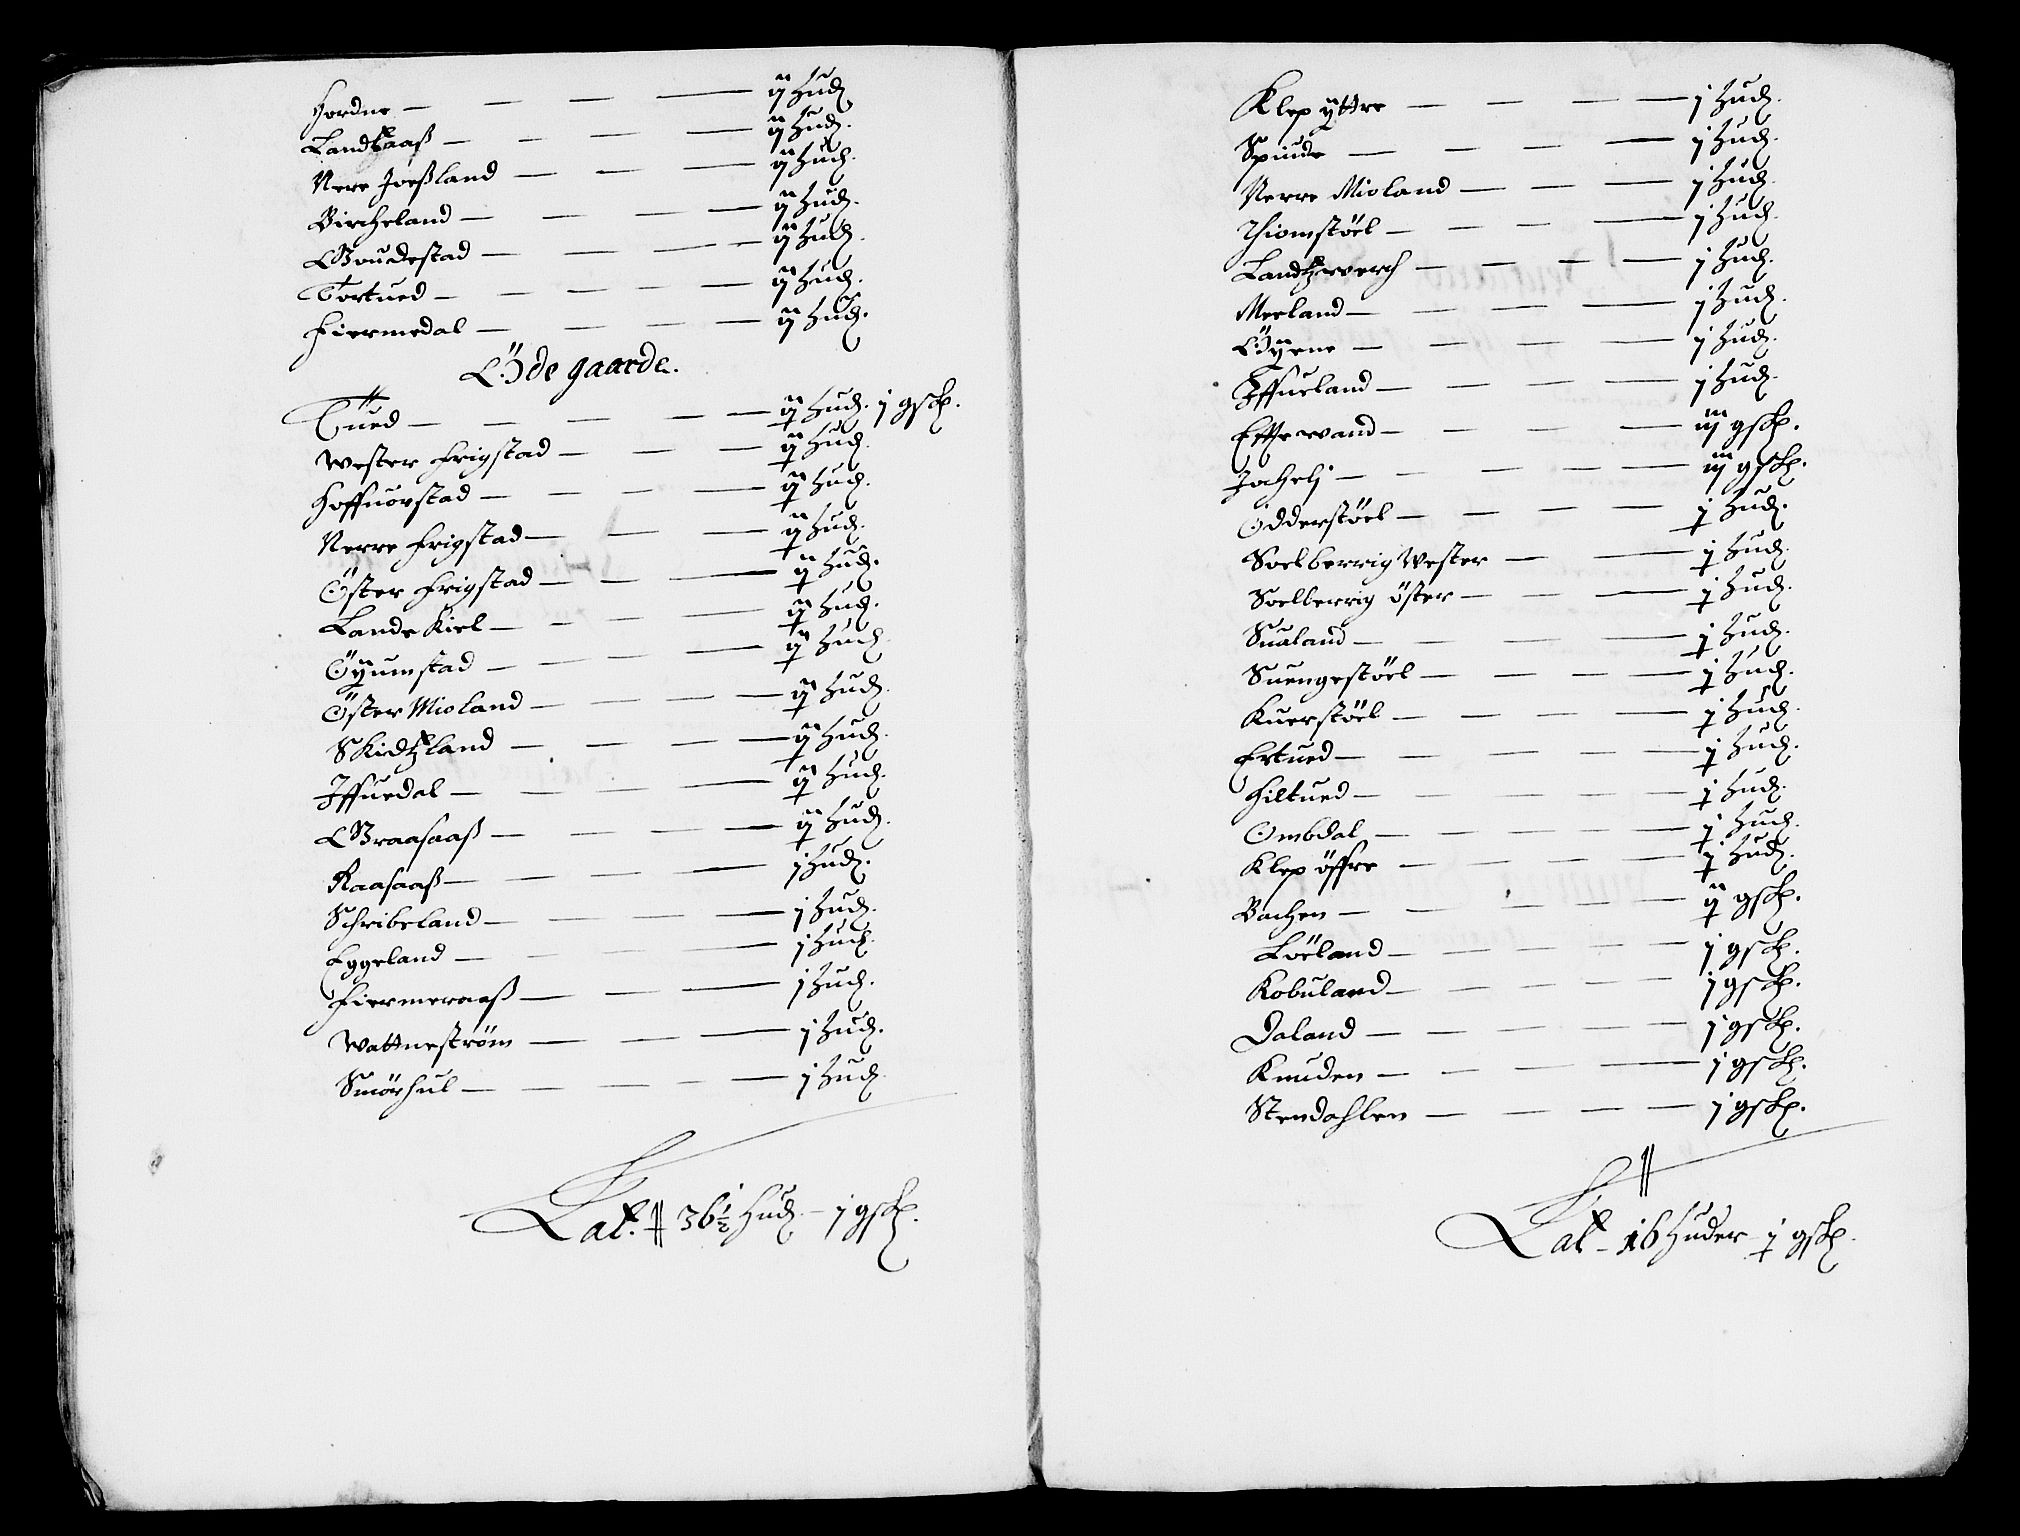 Hordne — — — — ij Hud.
Landtzaaß — — — — ij Hud.
Nere Joeßland — — — ij Hud.
Bircheland — — — — ij Hud.
Groudestad — — — — ij Hud.
Tortued — — — — ij Hud.
Fiermedal — — — — ij Hud.
Öde gaarde.
Tued — — — — ij Hud. j gsk.
Wester Frigstad — — — ij Hud.
Hoffuorstad — — — ij Hud.
Nerre Frigstad — — — ij Hud.
Öster Frigstad — — — ij Hud.
Lande Kiel — — — ij Hud.
Öÿumstad — — — ij Hud.
Öster Mioland — — — ij Hud.
Skidtzland — — — — ij Hud.
Iffuedal — — — — ij Hud.
Graasaaß — — — — ij Hud.
Raasaaß — — — — j Hud.
Schribeland — — — — j Hud.
Eggeland — — — — j Hud.
Fiermeraaß — — — j Hud.
Wattneström — — — j Hud.
Smörhul — — — — j Hud.
Lat. 36½ Hud. – j gsk.
Klep ÿttre — — — — j Hud.
Spinde — — — — j Hud.
Nerre Mioland — — — j Hud.
Thiomstöel — — — — j Hud.
Landtzverch — — — — j Hud.
Meeland — — — — j Hud.
Öÿene — — — — j Hud.
Iffueland — — — — j Hud.
Efftewand — — — — iij gsk.
Jochelj — — — — iij gsk.
Odderstöel — — — — j Hud.
Soelberrig Wester — — j Hud.
Soelberrig öster — — — j Hud.
Sualand — — — — j Hud.
Suengestöel — — — — j Hud.
Kuerstöel — — — — j Hud.
Ertued — — — — j Hud.
Hiltued — — — — j Hud.
Ombdal — — — — j Hud.
Klep öffre — — — — j Hud.
Bachen — — — — ij gsk.
Löeland — — — — j gsk.
Kobuland — — — — j gsk.
Daland — — — — j gsk.
Knuden — — — — j gsk.
Stendahlen — — — — j gsk.
Lat – 16 Huder – j gsk.